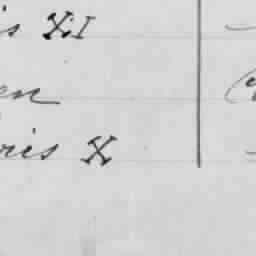 is XI
en
ries X